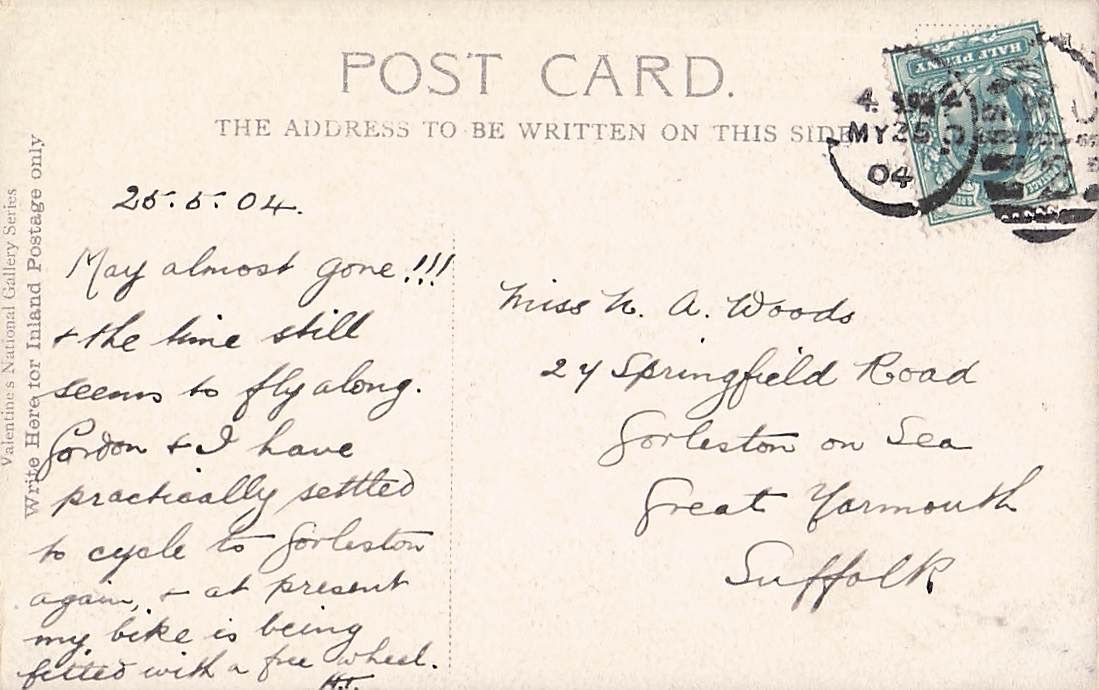 POST CARD.
THE ADDRESS TO BE WRITTEN ON THIS SIDE
HALF PENNY
4. PM
MY 25
04
Valentine's National Gallery Series
Write Here for Inland Postage only
25.5.04.
May almost gone!!!
& the time still
seems to fly along.
Gordon & I have
practically settled
to cycle to Gorleston
again, & at present
my bike is being
fitted with a free wheel.
H.T.
Miss N. A. Woods
24 Springfield Road
Gorleston on Sea
Great Yarmouth
Suffolk